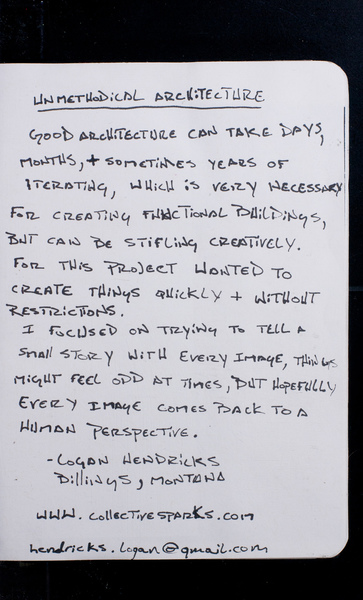 UNMETHODICAL ARCHITECTURE
GOOD ARCHITECTURE CAN TAKE DAYS,
MONTHS, + SOMETIMES YEARS OF
ITERATING, WHICH IS VERY NECESSARY
FOR CREATING FUNCTIONAL BUILDINGS,
BUT CAN BE STIFLING CREATIVELY.
FOR THIS PROJECT WANTED TO
CREATE THINGS QUICKLY + WITHOUT
RESTRICTIONS.
I FOCUSED ON TRYING TO TELL A
SMALL STORY WITH EVERY IMAGE, THINGS
MIGHT FEEL ODD AT TIMES, BUT HOPEFULLY
EVERY IMAGE COMES BACK TO A
HUMAN PERSPECTIVE.
-LOGAN HENDRICKS
BILLINGS, MONTANA
WWW. COLLECTIVESPARKS.COM
hendricks.logan@gmail.com